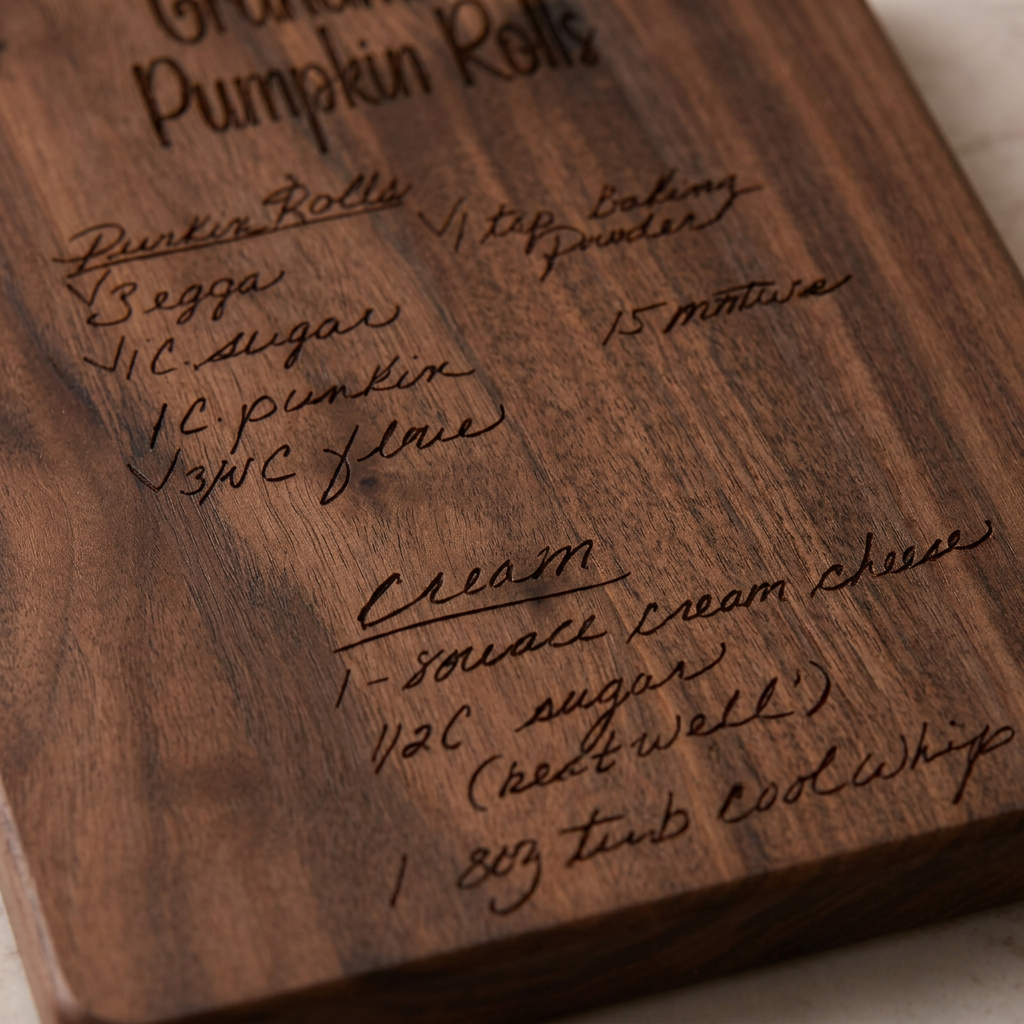 Pumpkin Rolls
Punkin Rolls
√3 egga
√1 C. sugar
1 C. punkin
√3/4 C floue
√1 tsp Baking
Powder
15
Cream
1 - cream cheese
1/2 C sugar
(beat well')
1 8oz tub cool whip